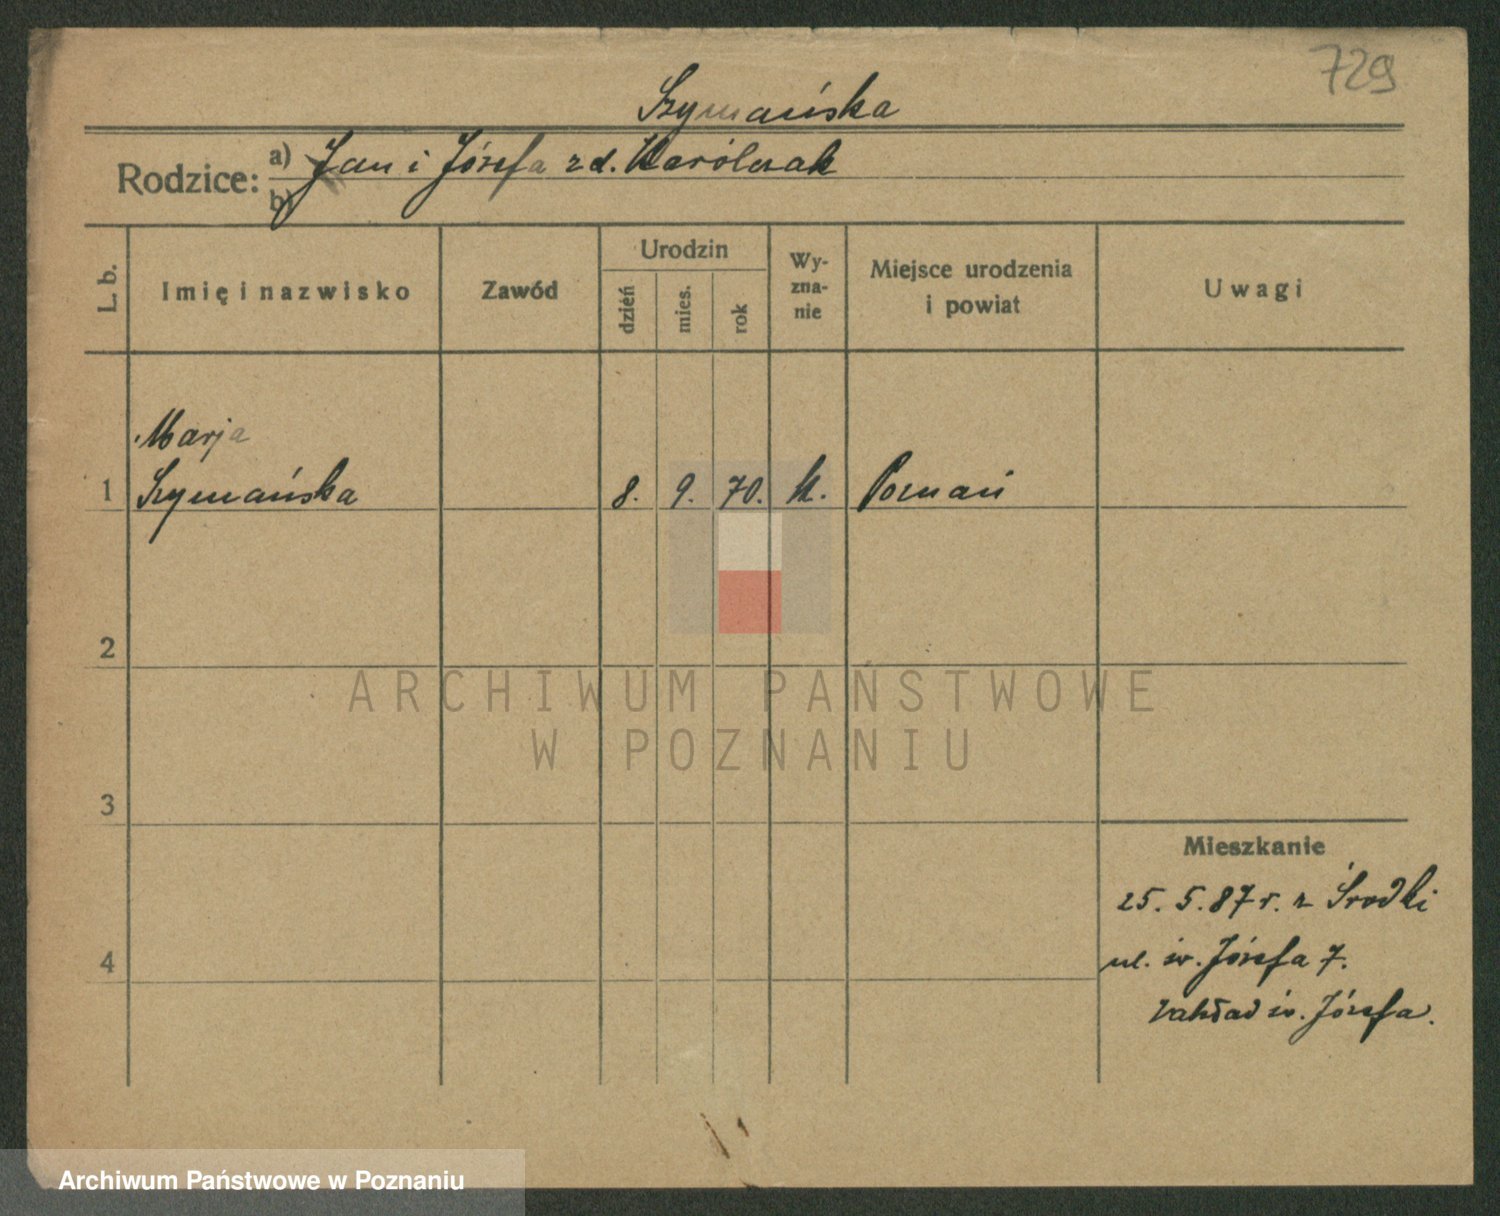 729
Szymańska
Rodzice: a) Jan i Józefa z d. Karólczak
b)
L. b.
Imię i nazwisko
Zawód
Urodzin
dzień
mies.
rok
Wy-
zna-
nie
Miejsce urodzenia
i powiat
Uwagi
Marja
1 Szymańska 8. 9. 70. k. Poznań
2
3
4
ARCHIWUM PAŃSTWOWE
W POZNANIU
Mieszkanie
25. 5. 87 r. z Środki
ul. św. Józefa 7.
Zakład św. Józefa.
Archiwum Państwowe w Poznaniu